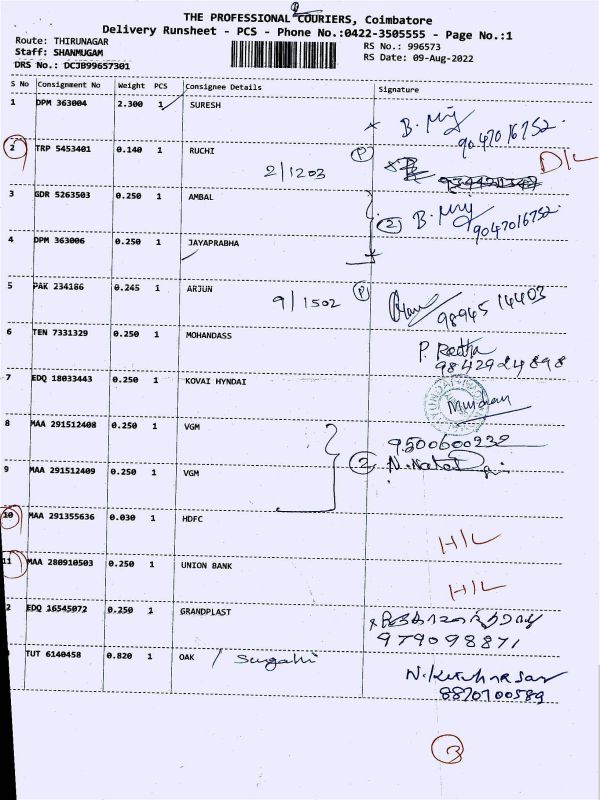 THE PROFESSIONAL COURIERS, Coimbatore
Delivery Runsheet - PCS - Phone No.:0422-3505555 - Page No.:1
Route: THIRUNAGAR
RS No.: 996573
Staff: SHANMUGAM
RS Date: 09-Aug-2022
DRS No.: DCJB99657301
S No Consignment No Weight PCS Consignee Details Signature
1 DPM 363004 2.300 1 SURESH
9047016752
2 TRP 5453401 0.140 1 RUCHI P D/L
2/1203
3 GDR 5263503 0.250 1 AMBAL
2 9047016752
4 DPM 363006 0.250 1 JAYAPRABHA
5 PAK 234186 0.245 1 ARJUN P
9/1502 9894514403
6 TEN 7331329 0.250 1 MOHANDASS P. Radha
9842924898
7 EDQ 18033443 0.250 1 KOVAI HYNDAI
8 MAA 291512408 0.250 1 VGM
9500600232
9 MAA 291512409 0.250 1 VGM 2
10 MAA 291355636 0.030 1 HDFC
H/L
11 MAA 280910503 0.250 1 UNION BANK
H/L
2 EDQ 16545072 0.250 1 GRANDPLAST
979098871
TUT 6140458 0.820 1 OAK / Sugahi
8870700589
3